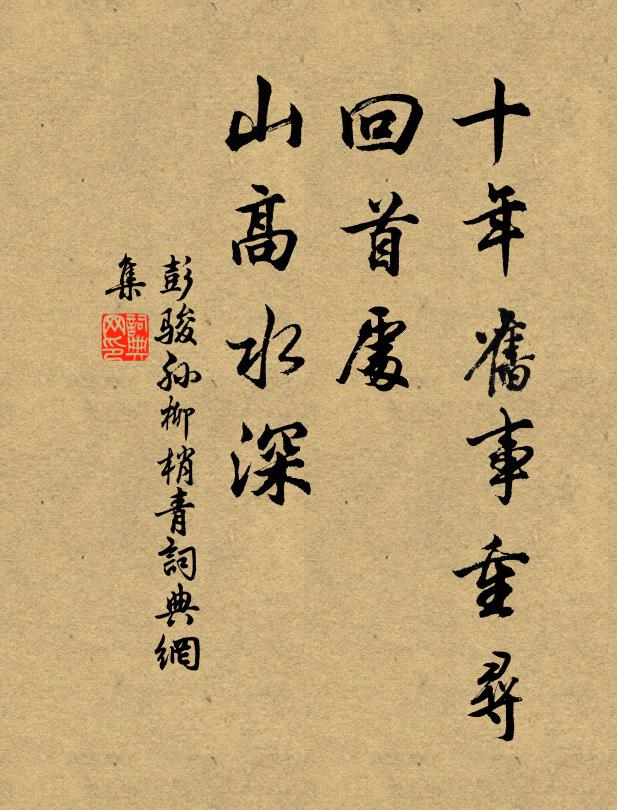 十年舊事重尋
回首處
山高水深
彭駿孫柳梢青詞典網
集
詞典
网印